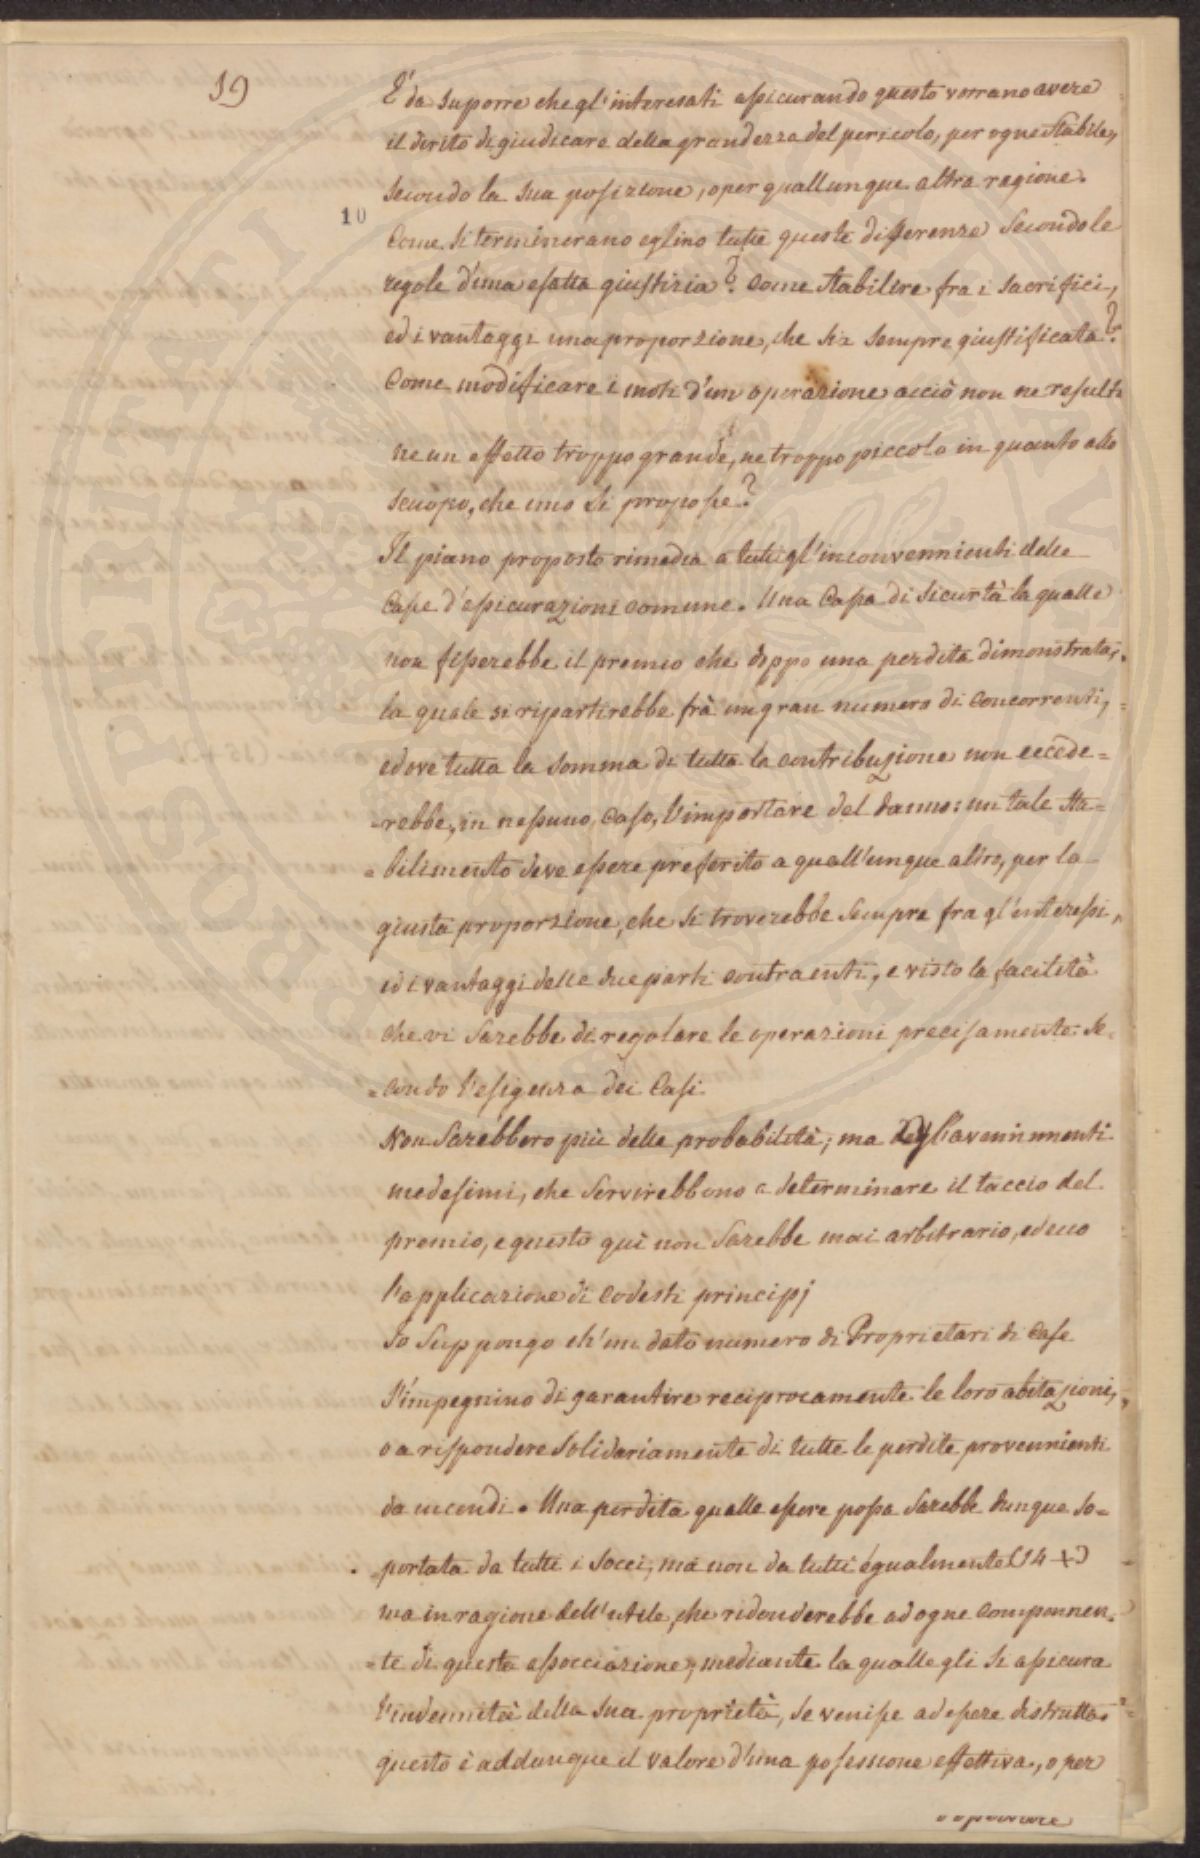 19
E' da suporre che gl'interesati assicurando questo vorrano avere
il dirito di giudicare della grandezza del pericolo, per ogne Stabile,
secondo la sua posizione, o per quallunque altra ragione.
10
Come si terminerano eglino tutte queste differenze Secondo le
regole d'una esatta giustizia? Come stabilire fra i sacrifici,
ed i vantaggi una proporzione, che sia sempre giustificata?
Come modificare i moti d'un operazione acciò non ne resulti
ne un effetto troppo grande, ne troppo piccolo in quanto allo
scuopo, che uno si propose?
Il piano proposto rimedia a tutti gl'inconvennienti delle
Casse d'assicurazioni comune. Una Cassa di Sicurtà la qualle
non fisserebbe il premio che doppo una perdita dimonstrata,
la quale si ripartirebbe frà un gran numero di Concorrenti,
ed ove tutta la somma di tutta la contribuzione non eccede=
=rebbe, in nessuno, Caso, l'importare del danno: un tale Sta=
=bilimento deve essere preferito a quall'unque altro, per la
giusta proporzione, che si troverebbe sempre fra gl'interessi,
ed i vantaggi delle due parti contraenti, e visto la facilità
che vi Sarebbe di regolare le operazioni precisamente Se=
=condo l'esigenza dei Casi
Non Sarebbero più delle probabilità; ma gl'avenimmenti
medesimi, che servirebbono a determinare il taccio del
premio, e questo quì non Sarebbe mai arbitrario, ecco
l'applicazione di codesti principj
Io Suppongo ch'un dato numero di Proprietari di Case
s'impegnino di garantire reciprocamente le loro abitazioni,
o a rispondere Solidariamente di tutte le perdite provennienti
da incendi. Una perdita qualle essere possa Sarebbe dunque so=
=portata da tutti i Socci, ma non da tutti egualmente (14 +)
ma in ragione dell'utile, che ridonderebbe ad ogne Componnen=
=te di questa associazione, mediante la qualle gli si assicura
l'indennità della sua proprietà, se venisse ad essere distrutta.
questo è addunque il valore d'una possessione effettiva, o per